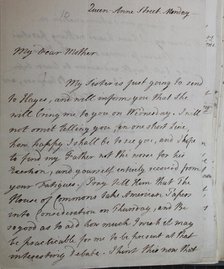 Queen Anne Street Monday
My Dear Mother
My Sister is just going to send
to Hayes, and will inform you that She
will bring me to you on Wednesday. I will
not omit telling you, in one short line,
how happy I shall be to see you, and I hope
to find my Father not the worse for his
Exertion, and yourself entirely recovered from
your Fatigues. Pray tell Him that The
House of Commons take American Papers
into Consideration on Thursday, and Be
so good as to add how much I wish it may
be practicable for me to be present at that
interesting Debate. I hint this now that